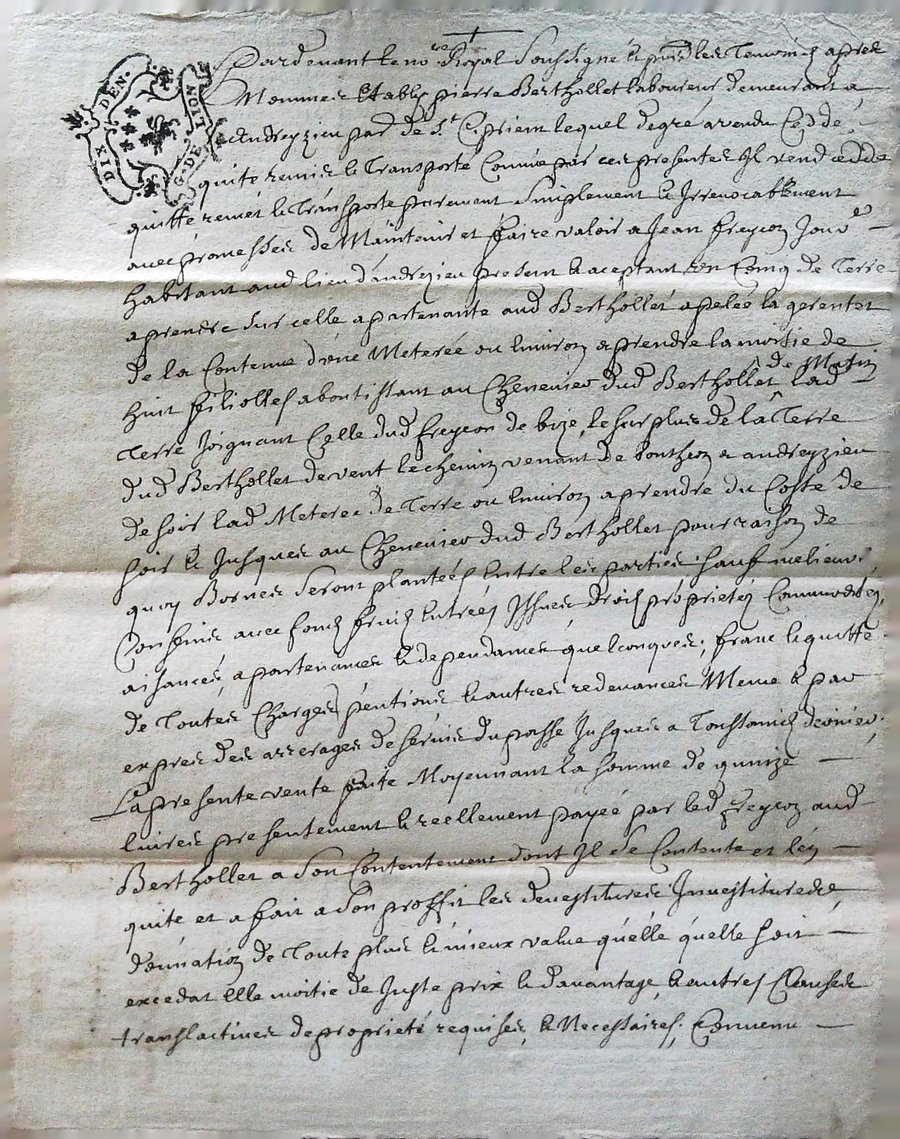 DIX DEN. G. DE LION
Pardevant le no.re Royal Soussigné et pnts les Temoins apres
Nommes Estably pierre Berthollet laboureur demeurant a
Andreyzieu par de St. Ciprien lequel de gre a vendu Cedde
quité remis et Transporté Comme par ces presentes Il vend cedde
quitte remet et Transporte purement Simplement et Irrevocablement
avec promesses de Maintenir et faire valoir a Jean freycon
habitant aud lieu d'andrezieu present et aceptant un Coing de Terre
a prendre sur celle apartenante aud Berthollet apelée la
de la Contenue d'une Meterée ou Environ a prendre la moitie de
huit filiolles aboutissant au Chenevier dud Berthollet lad de Matin
Terre Joignant Celle dud freycon de bize, le surplus de la Terre
dud Berthollet de vent le chemin venant de a andreyzieu
de soir lad Meteree de Terre ou Environ a prendre du Coste de
soir et Jusques au Chenevier dud Berthollet pour raison de
quoy Bornes Seront plantées Entre les parties sauf melieurs
Confins avec fond fruicts Entrées Issues droits propriétés Commodités
aisances, apartenances et dependances quelconques, franc et quitte
de Toutes Charges pentions et autres redevances Meme et par
expres des arrerages de servis du passe Jusques a Toussaincts dernier
La presente vente faite Moyennant la somme de quinze
livres presentement et reellement payée par led freycon aud
Berthollet a Son Contentement dont Il Se Contente et len
quite et a fait a Son proffit les devestitures Investitures de
donnation de Toute plus et mieux value quelle quelle soit
excedat Elle moitie de Juste prix et davantage, et autres Clauses
translatives de propriété requises, et Necessaires, Convenu